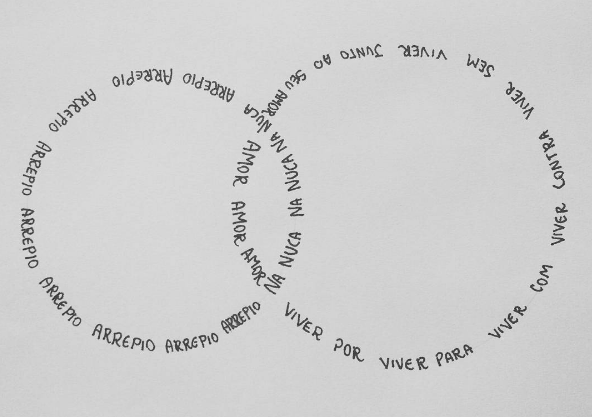 ARREPIO ARREPIO ARREPIO ARREPIO ARREPIO ARREPIO ARREPIO ARREPIO ARREPIO NA NUCA NA NUCA NA NUCA
AMOR AMOR AMOR VIVER POR VIVER PARA VIVER COM VIVER CONTRA VIVER SEM VIVER JUNTO AO SEU AMOR